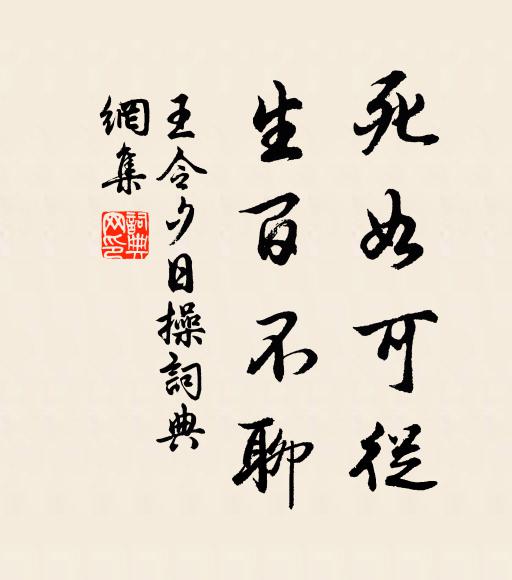 死如可從
生百不聊
王令夕日操詞典
網集
詞典網印